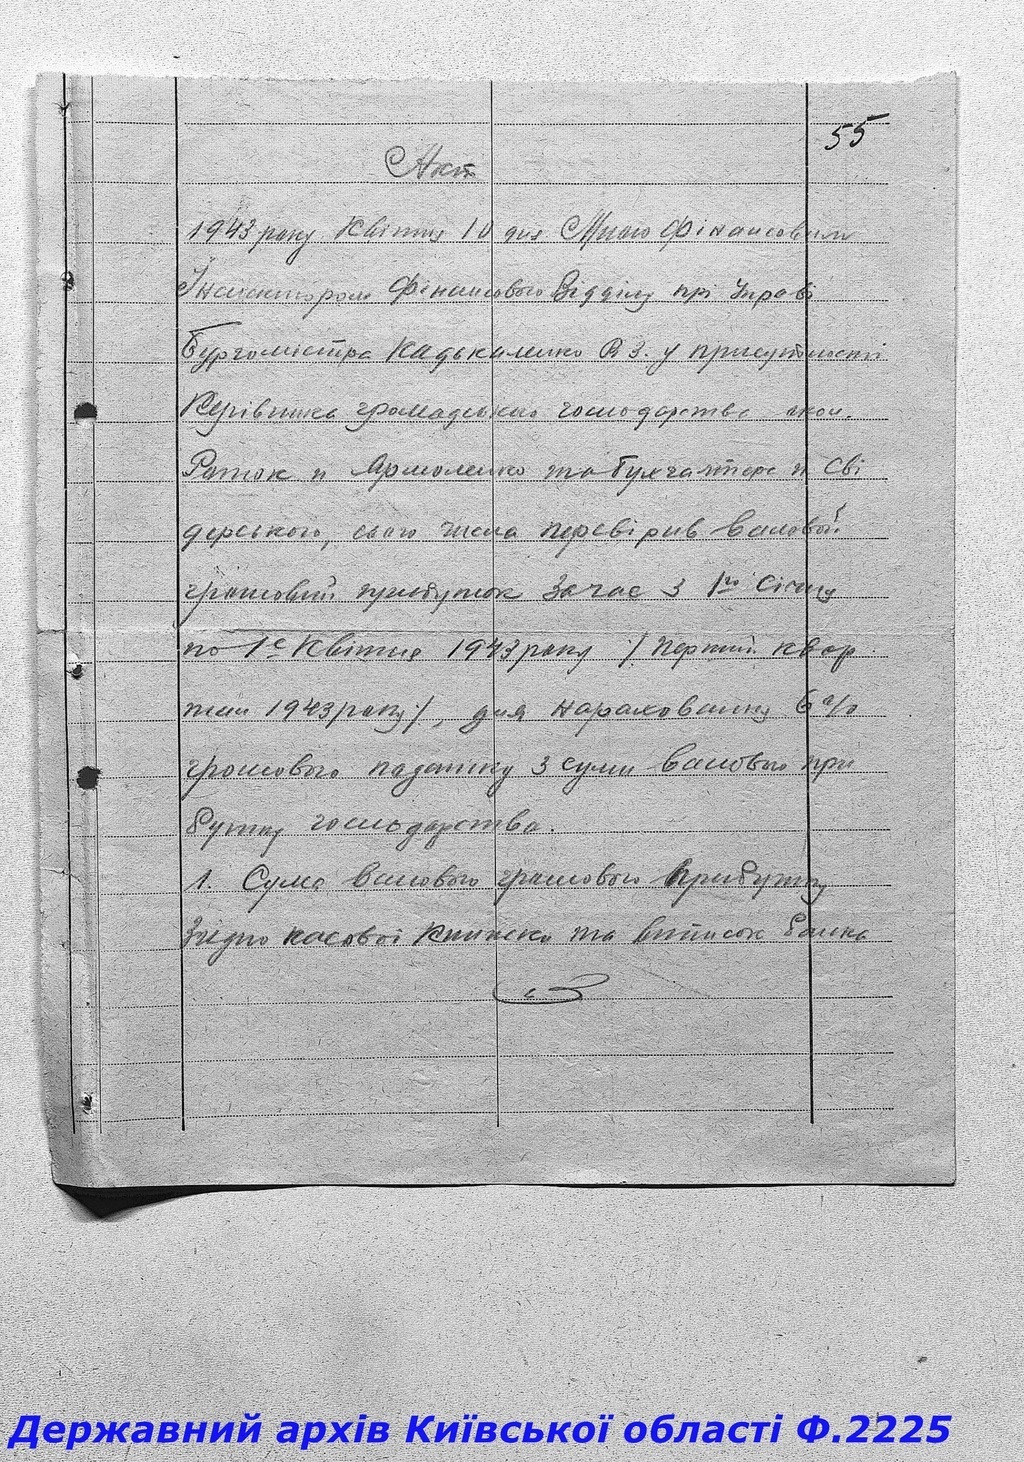 55
Акт
1943 року Квітня 10 дня Мною Фінансовим
Інспектором Фінансового Відділу прі Управі
Бургомістра З. у присутності
Керівника громадського господарства
п Ярмоленко та бухгалтера п Сві
дерського, сього числа перевірив валовой
грошовий прибуток за час з 1го Січня
по 1е Квітня 1943 року / Перший квар
тал 1943 року /, для нарахованню 6%
грошового податку з суми валового при
бутку господарства.
1. Сума валового грошового прибутку
Згідно касової книжки та виписок банка
Державний архів Київської області Ф.2225